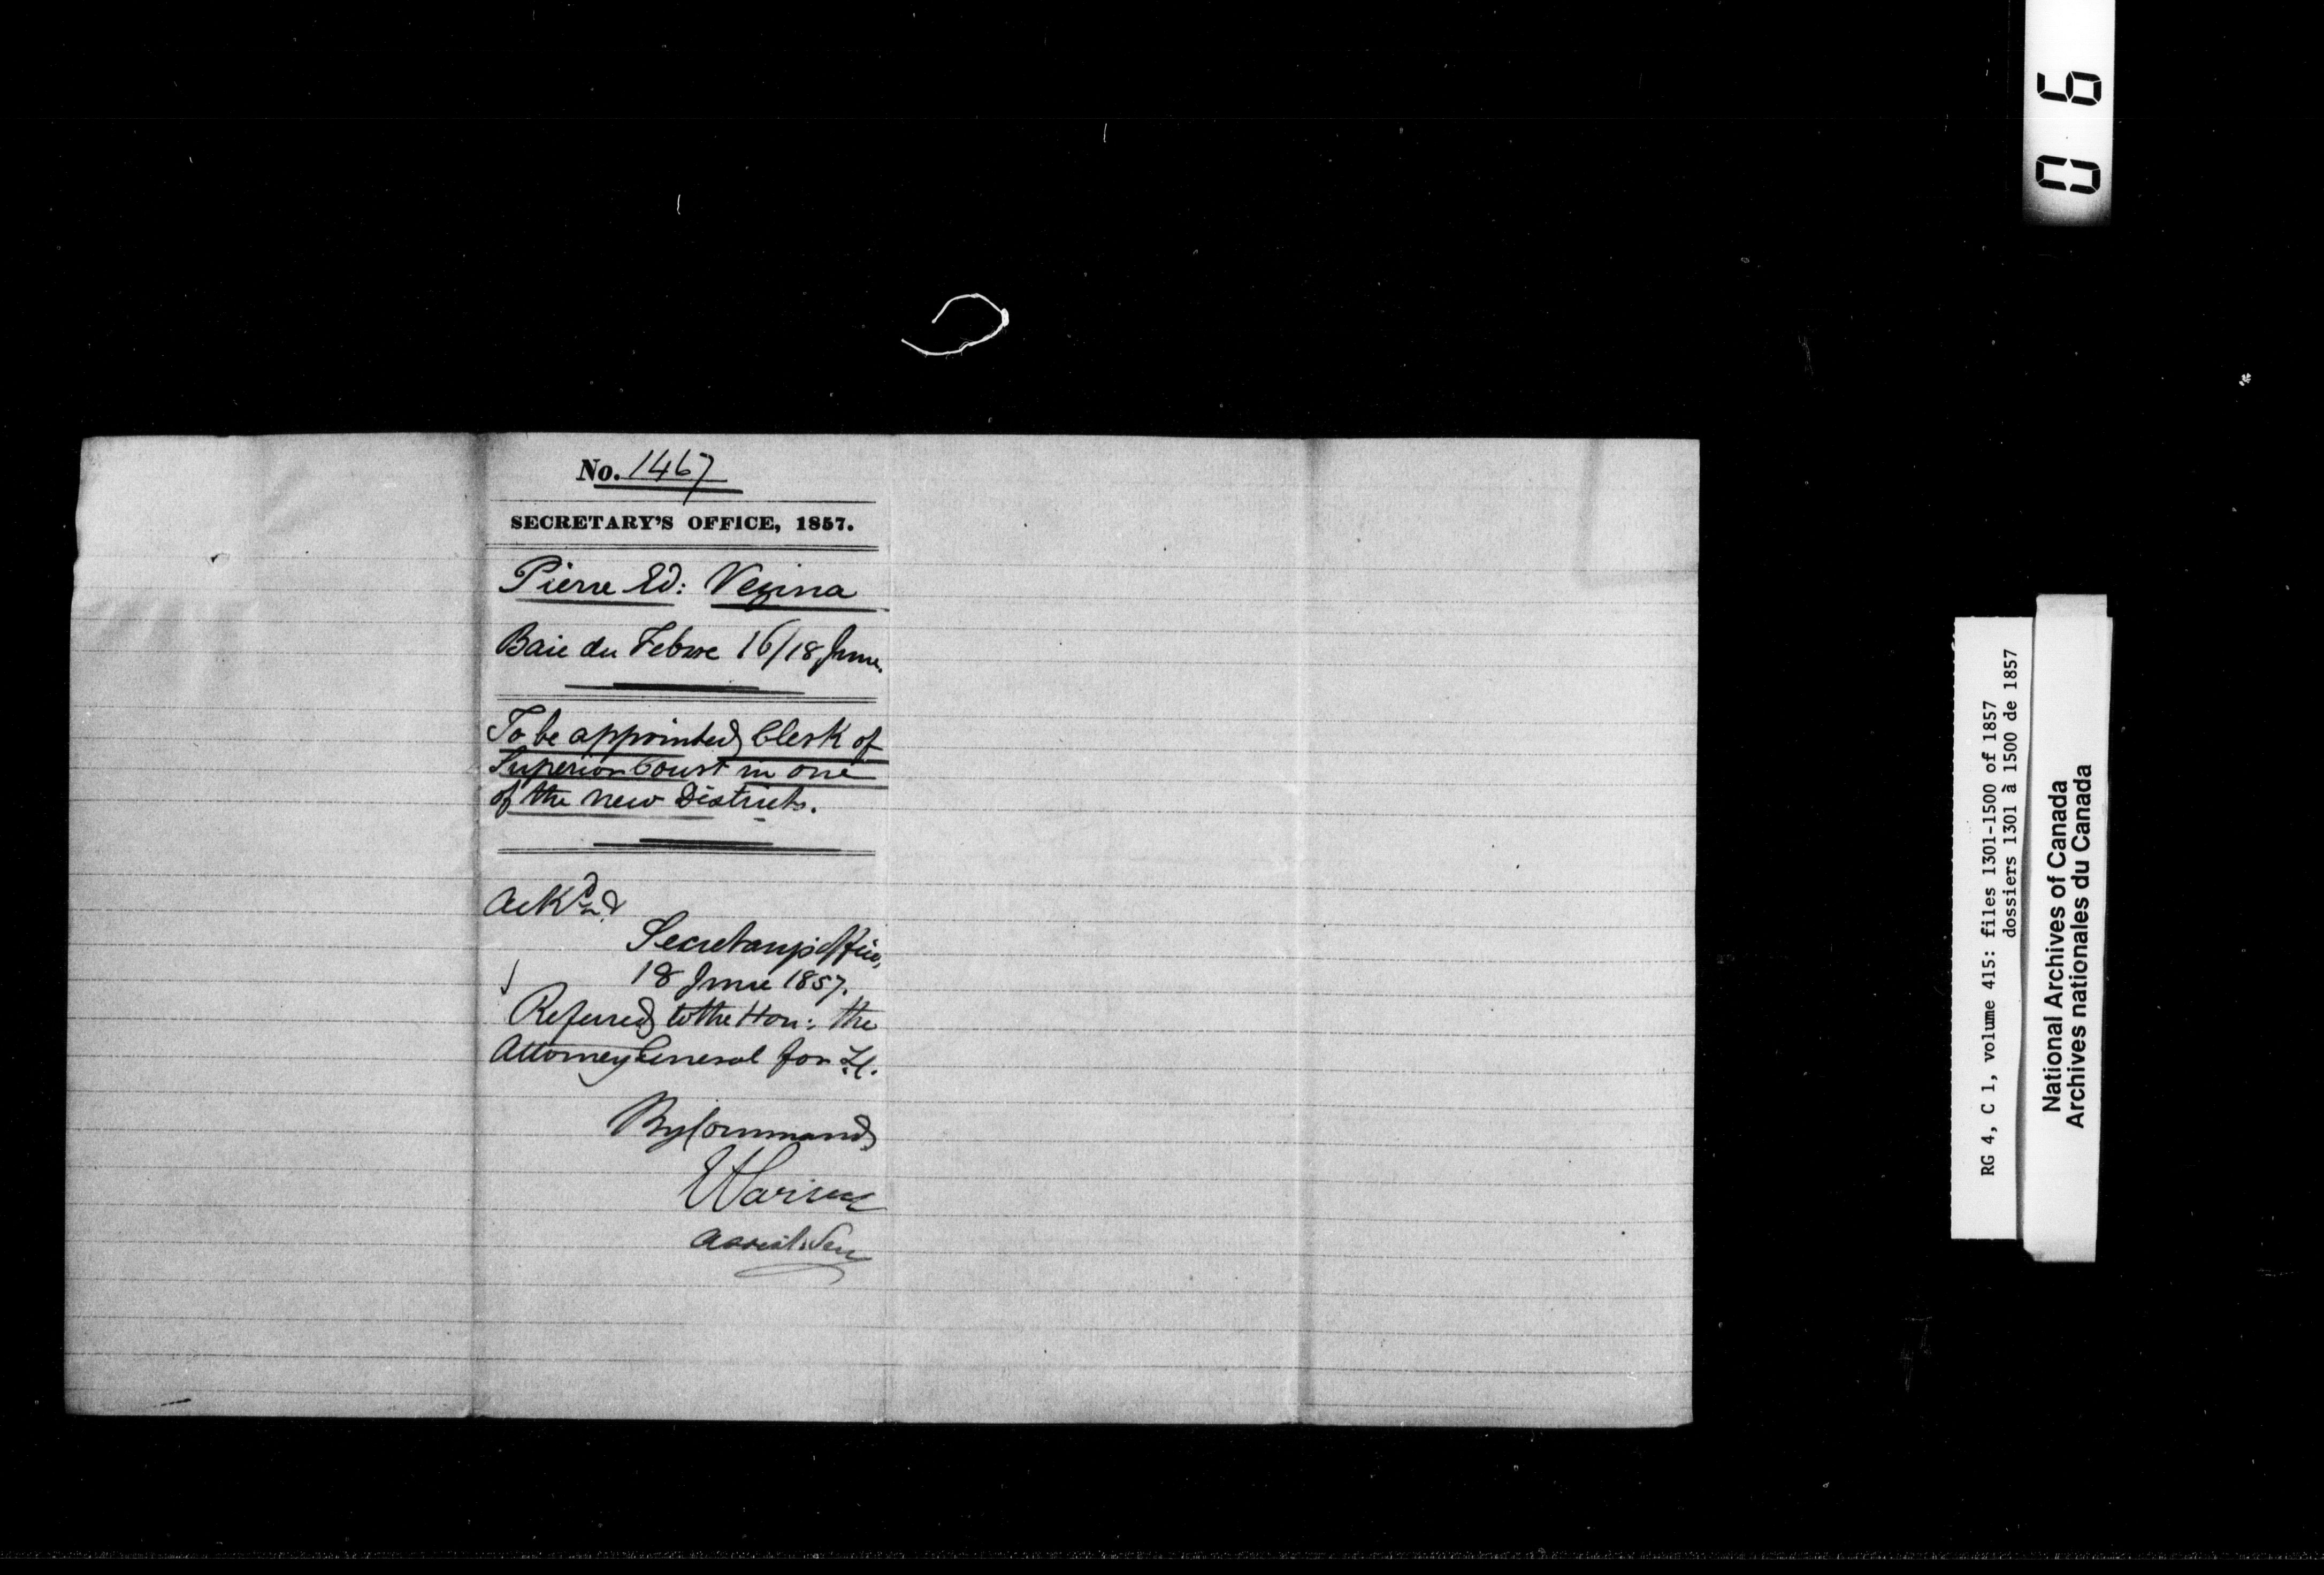 No. 1467
SECRETARY'S OFFICE, 1857.
Pierre Ed: Vezina
Baie du Febvre 16/18 June.
To be appointed Clerk of
Superior Court in one
of the new Districts.
Ackd
Secretary's Office,
18 June 1857.
Referred to the Hon: the
Attorney General for L.C.
By Command
Assist. Secy
06
RG 4, C 1, volume 415: files 1301-1500 of 1857
dossiers 1301 à 1500 de 1857
National Archives of Canada
Archives nationales du Canada